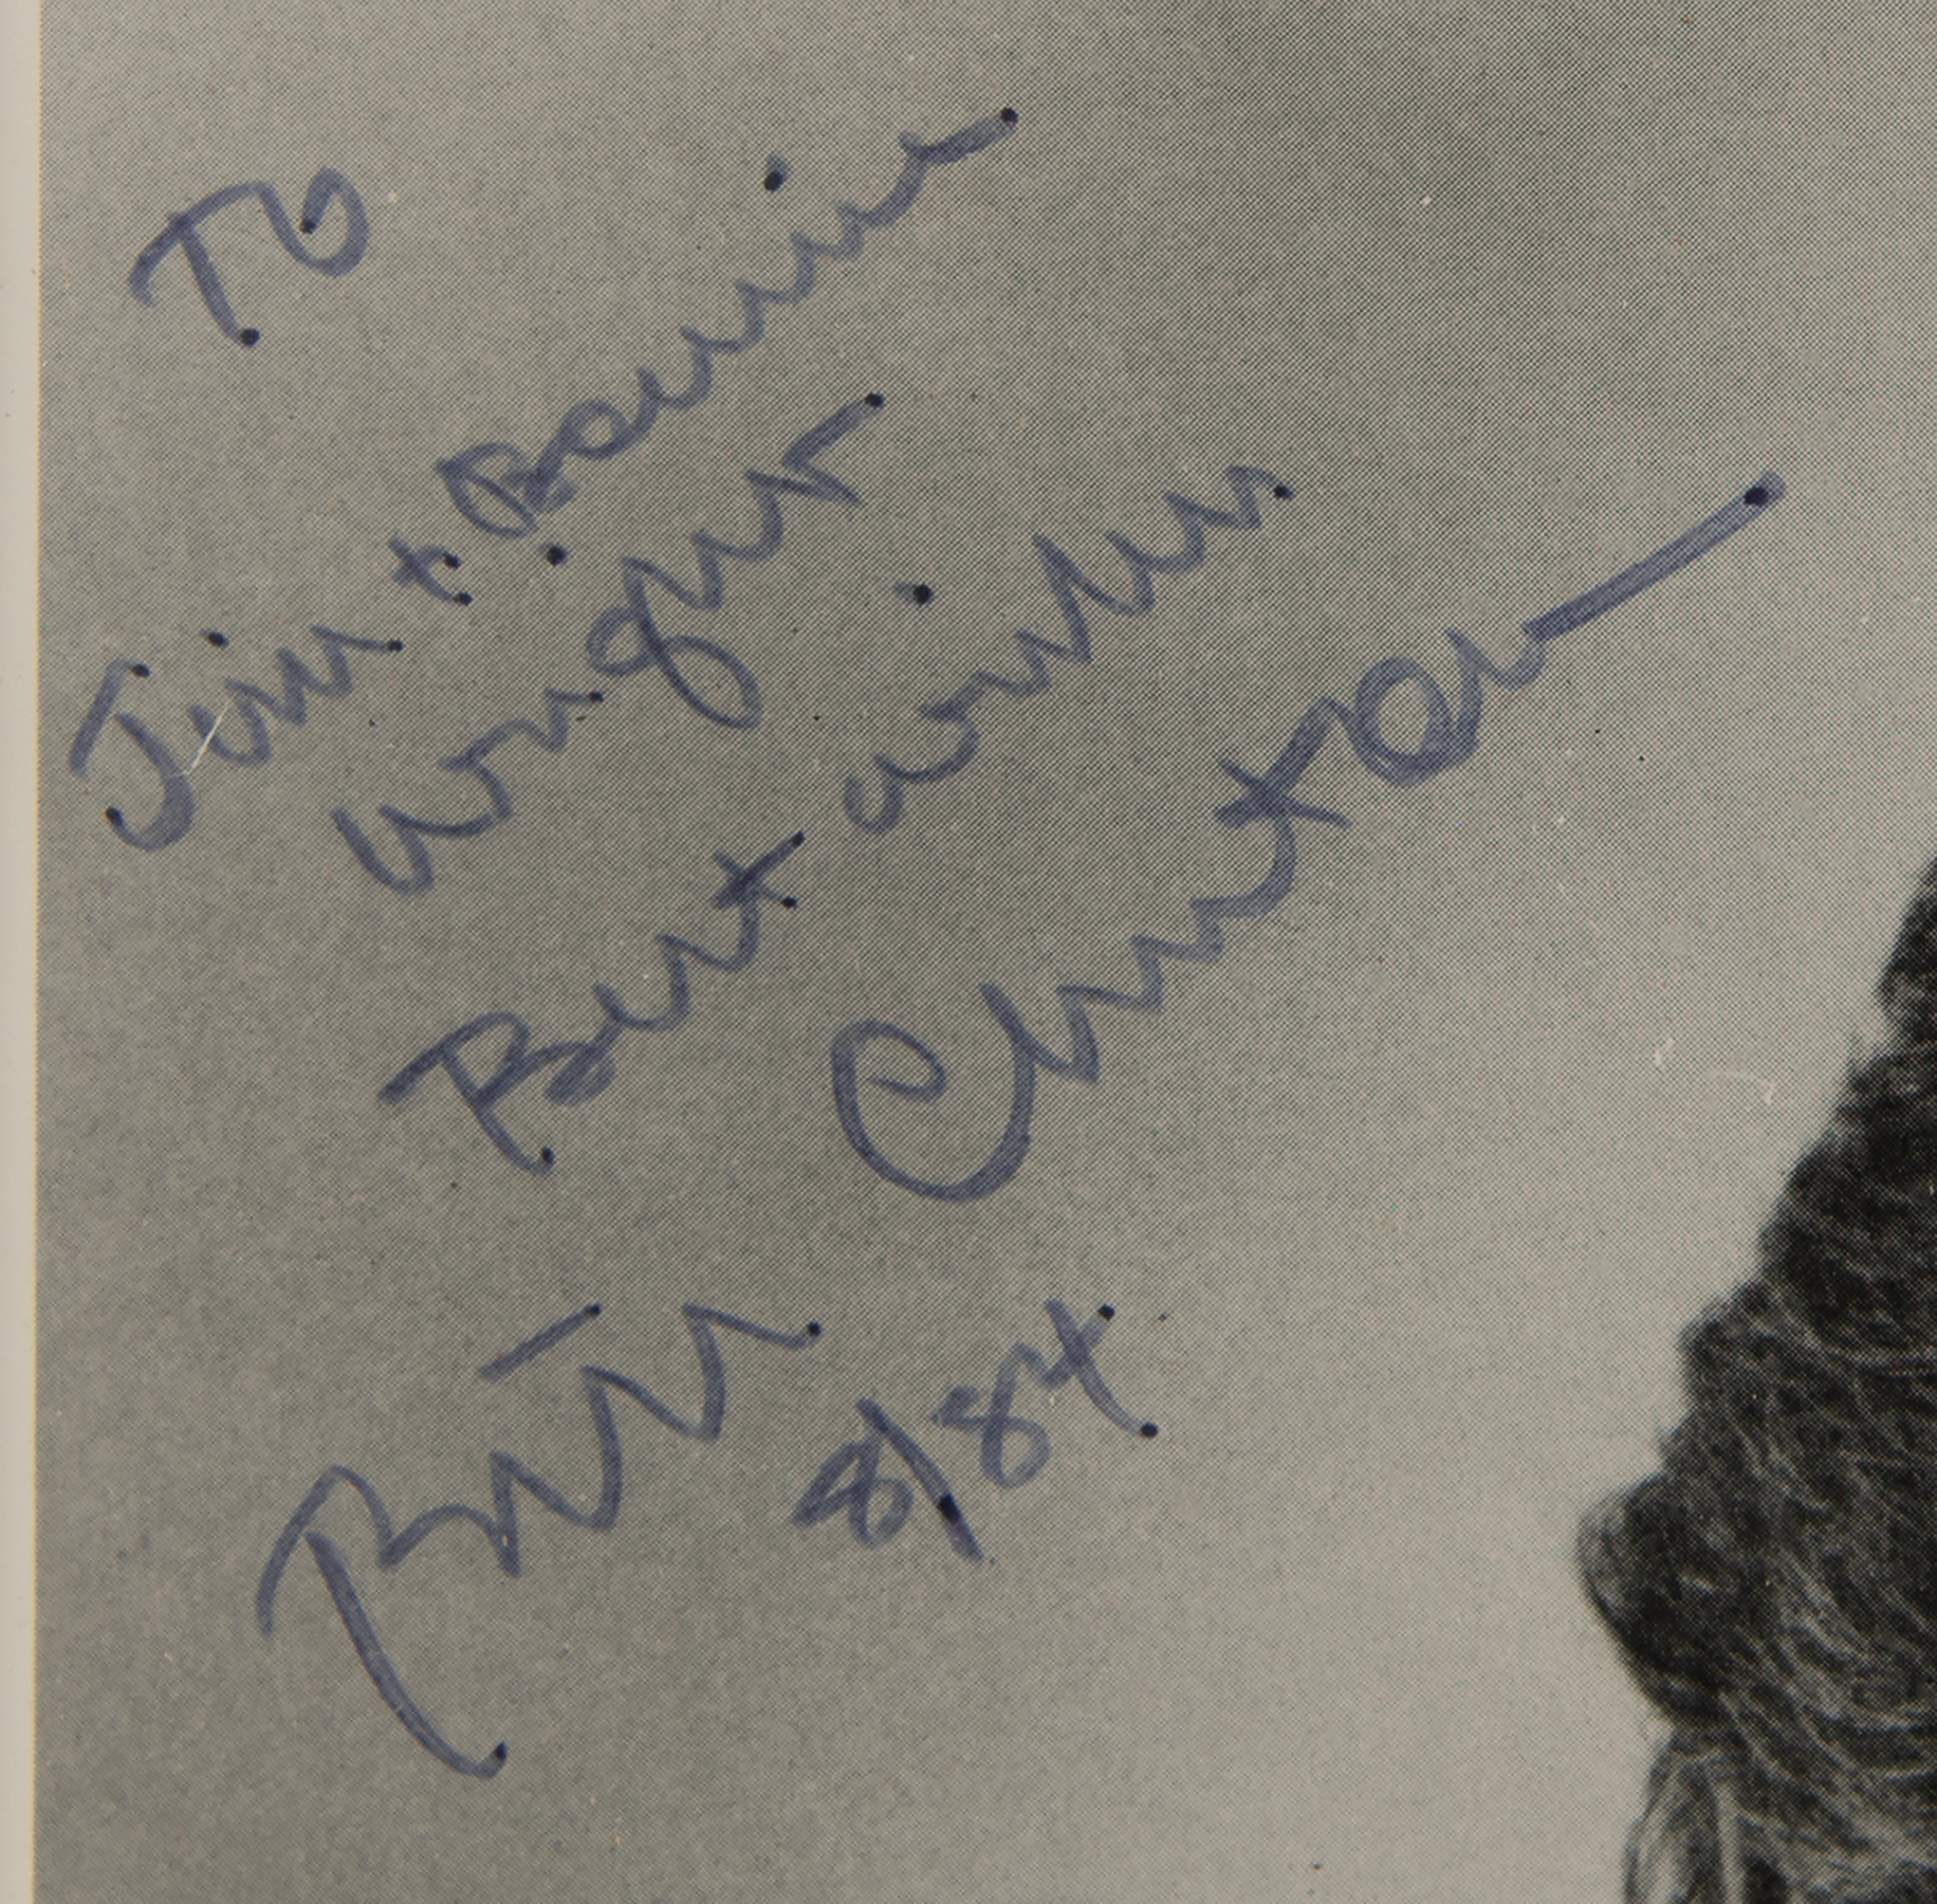 To
Jim + Bennie
Wright
Best wishes
Bill Clinton
8/84